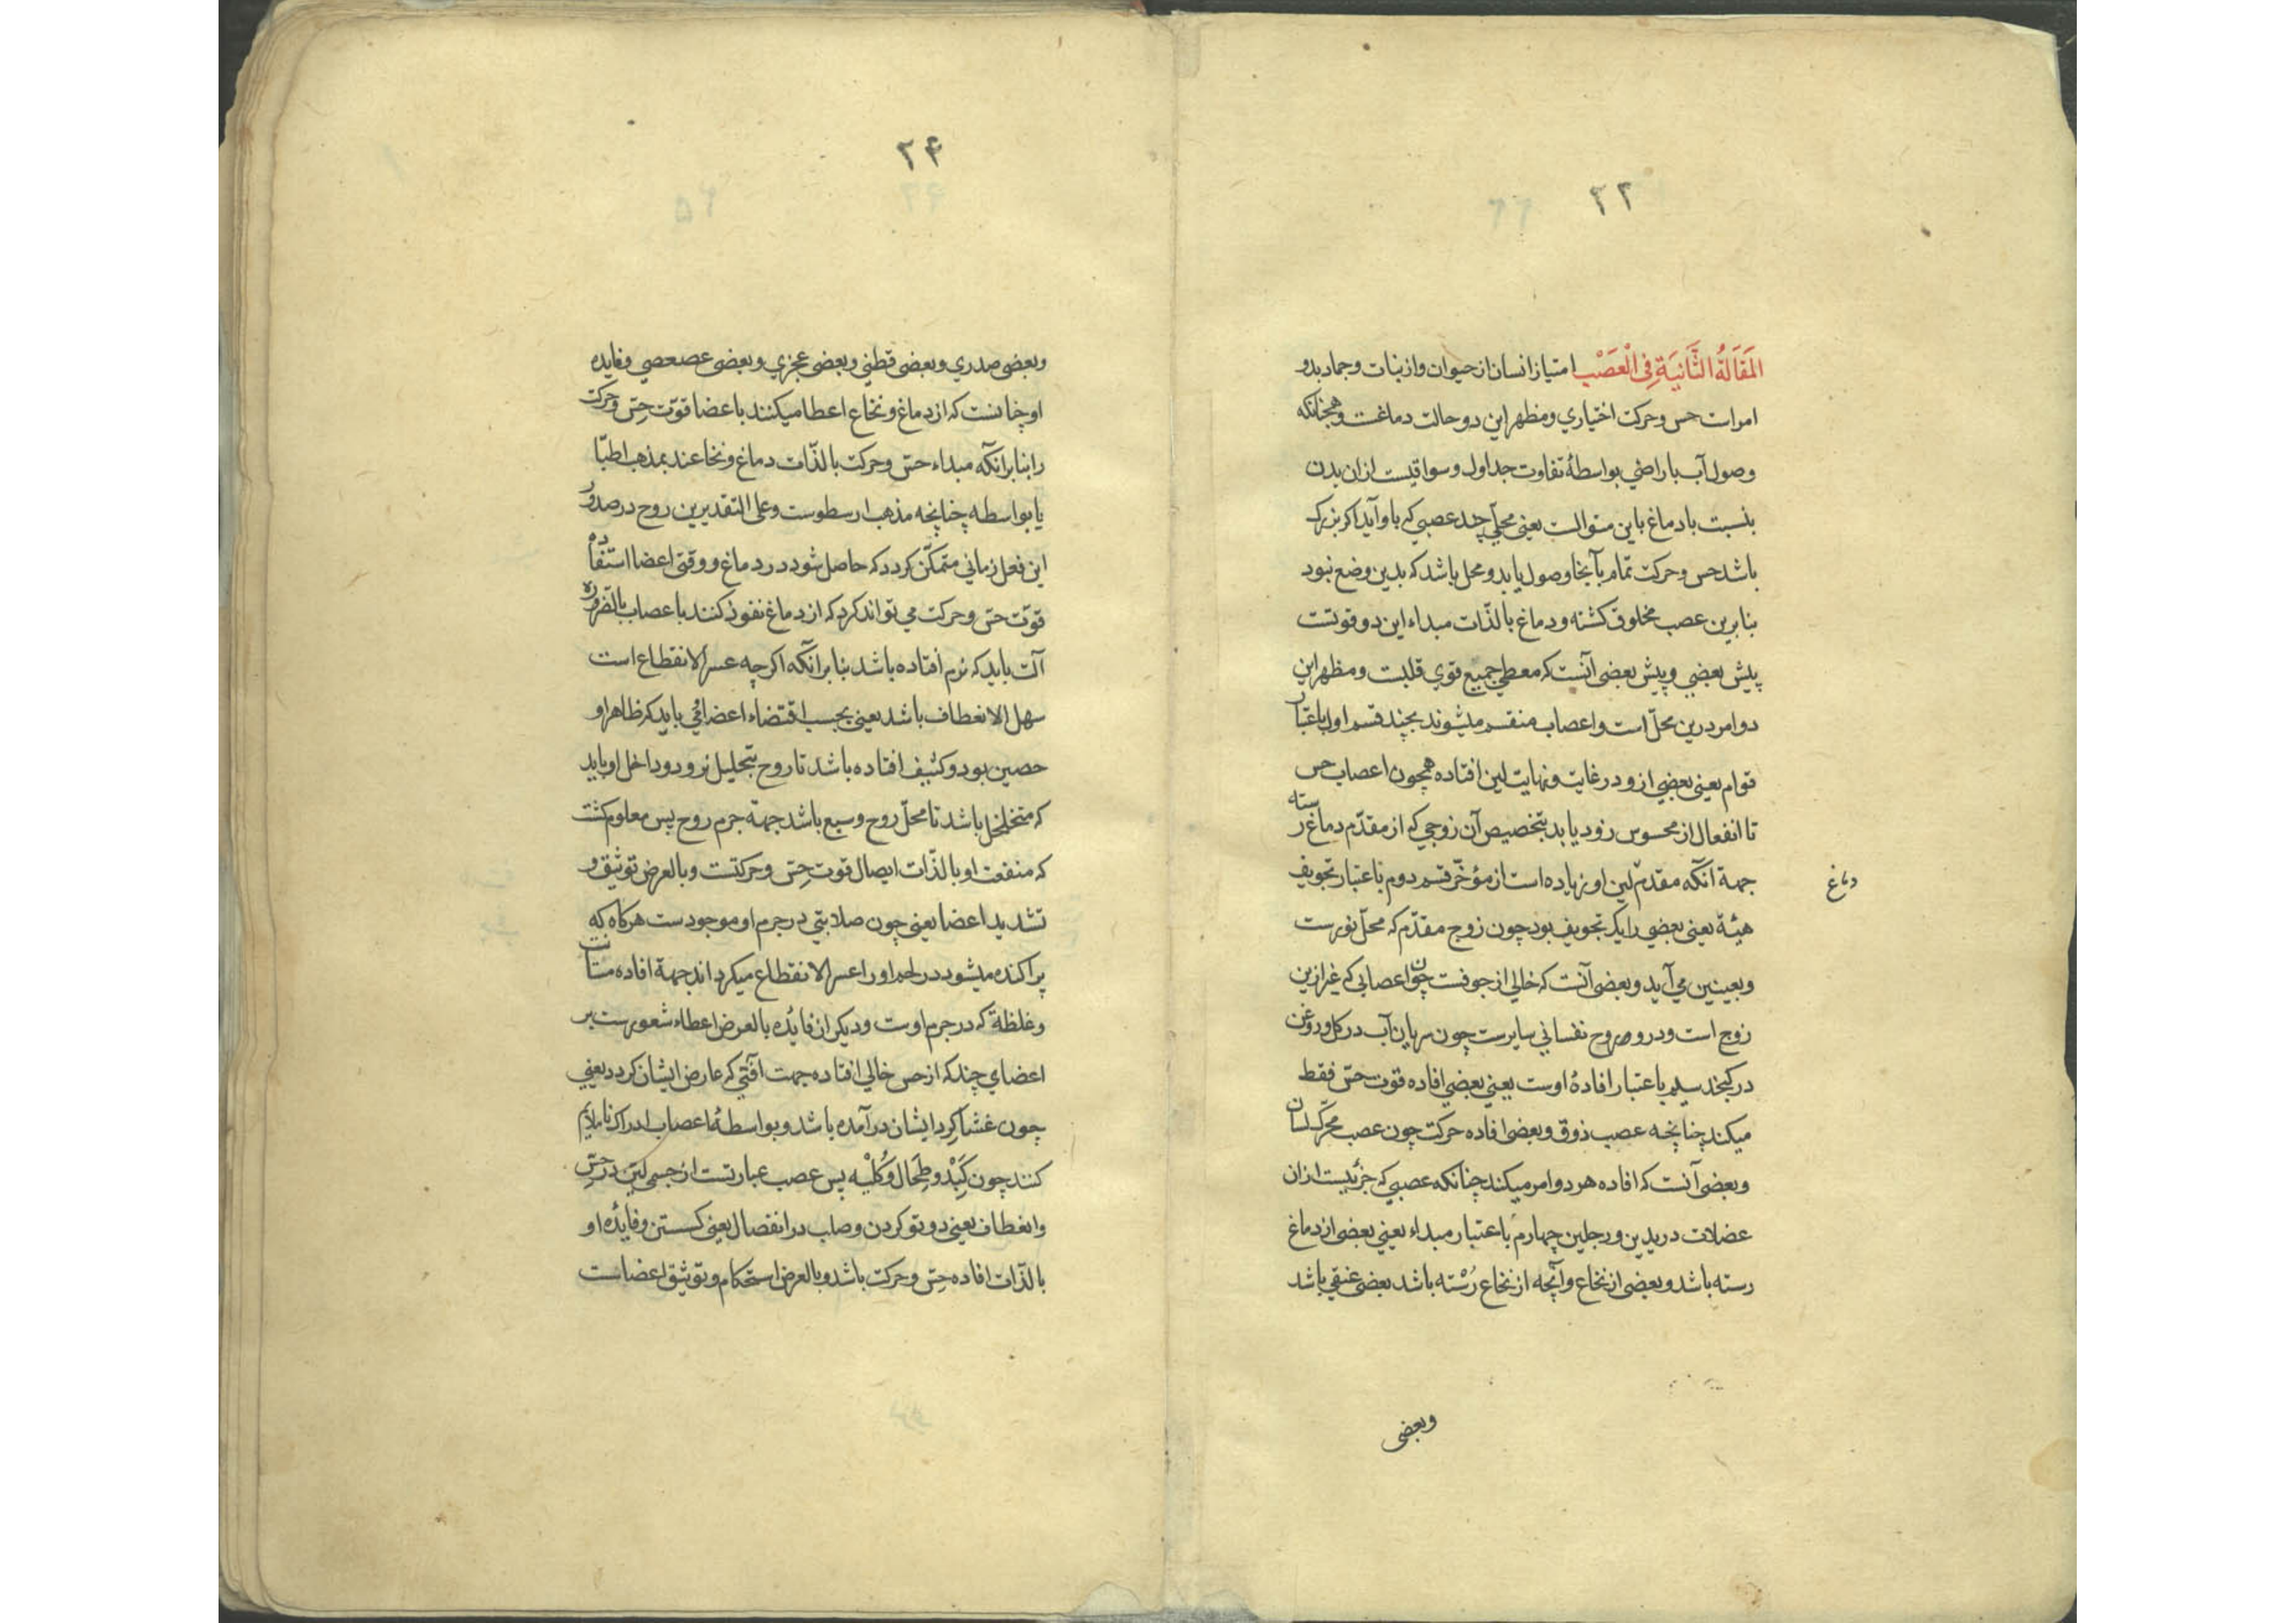 ۲۳
المَقَالَةُ الثَّانِيَةِ فِی الْعَصَبْ امتیاز انسان از حیوان و از نبات و جماد بدو
امراست حس و حرکت اختیاري و مظهر این دو حالت دماغست و همچنانکه
وصول آب باراضي بواسطهٔ تفاوت جداول و سواقیست ازان بدن
بنسبت با دماغ باین منوالست یعنی محلّی چند عصبي که باو آید اکر بزرک
باشد حس و حرکت تمام بآنجا وصول یابد و محل باشد که بدین وضع نبود
بنا برین عصب مخلوق کشته و دماغ بالذّات مبداء این دو قوتست
پیش بعضي و پیش بعضی آنست که معطي جمیع قوي قلبست و مظهر این
دو امر درین محلّ است و اعصاب منقسم میشوند بچند قسم اول باعتبار
قوام یعنی بعضي ازو در غایت و نهایت لین افتاده همچون اعصاب حس
تا انفعال از محسوس زود یابد بتخصیص آن زوجي که از مقدّم دماغ رسته
جهة آنکه مقدّم لین او زیاده است از مؤخّر قسم دوم باعتبار تجویف
دماغ
هیئة یعنی بعضي را یک تجویف بود چون زوج مقدّم که محلّ نورست
و بعینین مي آید و بعضی آنست که خالي از جوفست چون اعصابی که غیر ازین
زوج است و درو روح نفساني سایرست چون سریان آب در کل و روغن
در کنجد سیم باعتبار افادهٔ اوست یعنی بعضي افاده قوت حسّ فقط
میکند چنانچه عصب ذوق و بعضی افاده حرکت چون عصب محرّک لسان
و بعضی آنست که افاده هر دو امر میکند چنانکه عصبي که جزئیست ازان
عضلات در یدین و رجلین چهارم باعتبار مبداء یعنی بعضی از دماغ
رسته باشد و بعضی از نخاع و آنچه از نخاع رُسْته باشد بعضی عنقي باشد
وبعضی
۲۴
وبعضی صدري وبعضی قطني وبعضی عجزي وبعضی عصعصي و فایده
او چنانست که از دماغ و نخاع اعطا میکنند باعضا قوّت حِسّ و حرکت
را بنابر آنکه مبداء حسّ و حرکت بالذّات دماغ و نخاعند بمذهب اطبّا
یا بواسطه چنانچه مذهب ارسطوست و علی التقدیرین روح در صدور
این فعل زماني متمکّن کردد که حاصل شود در دماغ و وقتی اعضا استفاده
قوّت حسّ و حرکت مي تواند کرد که از دماغ نفوذ کنند باعصاب بالضروره
آلت باید که نرم افتاده باشد بنا برانکه اکرچه عسر الانقطاع است
سهل الانعطاف باشد یعنی بحسب اقتضاء اعضا في باید که ظاهر او
حصین بود و کثیف افتاده باشد تا روح بتحلیل نرود و داخل او باید
که متخلخل باشد تا محلّ روح وسیع باشد جهة جرم روح پس معلوم کشت
که منفعت او بالذّات ایصال قوت حِسّ و حرکتست و بالعرض توثیق و
تشدید اعضا یعنی چون صلابتي در جرم او موجودست هرکاه که
پراکنده میشود در لحم او را عسر الانقطاع میکرداند جهة افاده متانت
و غلظة که در جرم اوست و دیکر ان فایده بالعرض اعطاء شعورست بر
اعضاي چند که از حس خالي افتاده جهت آفتي که عارض ایشان کردد یعني
چون غشا کِردِ ایشان درآمده باشد و بواسطهٔ اعصاب ادراک ناملایم
کنند چون کَبِدْ و طِحَال و کُلْیِه پس عصب عبارتست از جسمی لیّن در حسّ
وانعطاف یعنی دو تو کردن و صلب در انفصال یعنی کسستن و فایدهٔ او
بالذّات افاده حِسّ و حرکت باشد و بالعرض استحکام و توثیق اعضاست